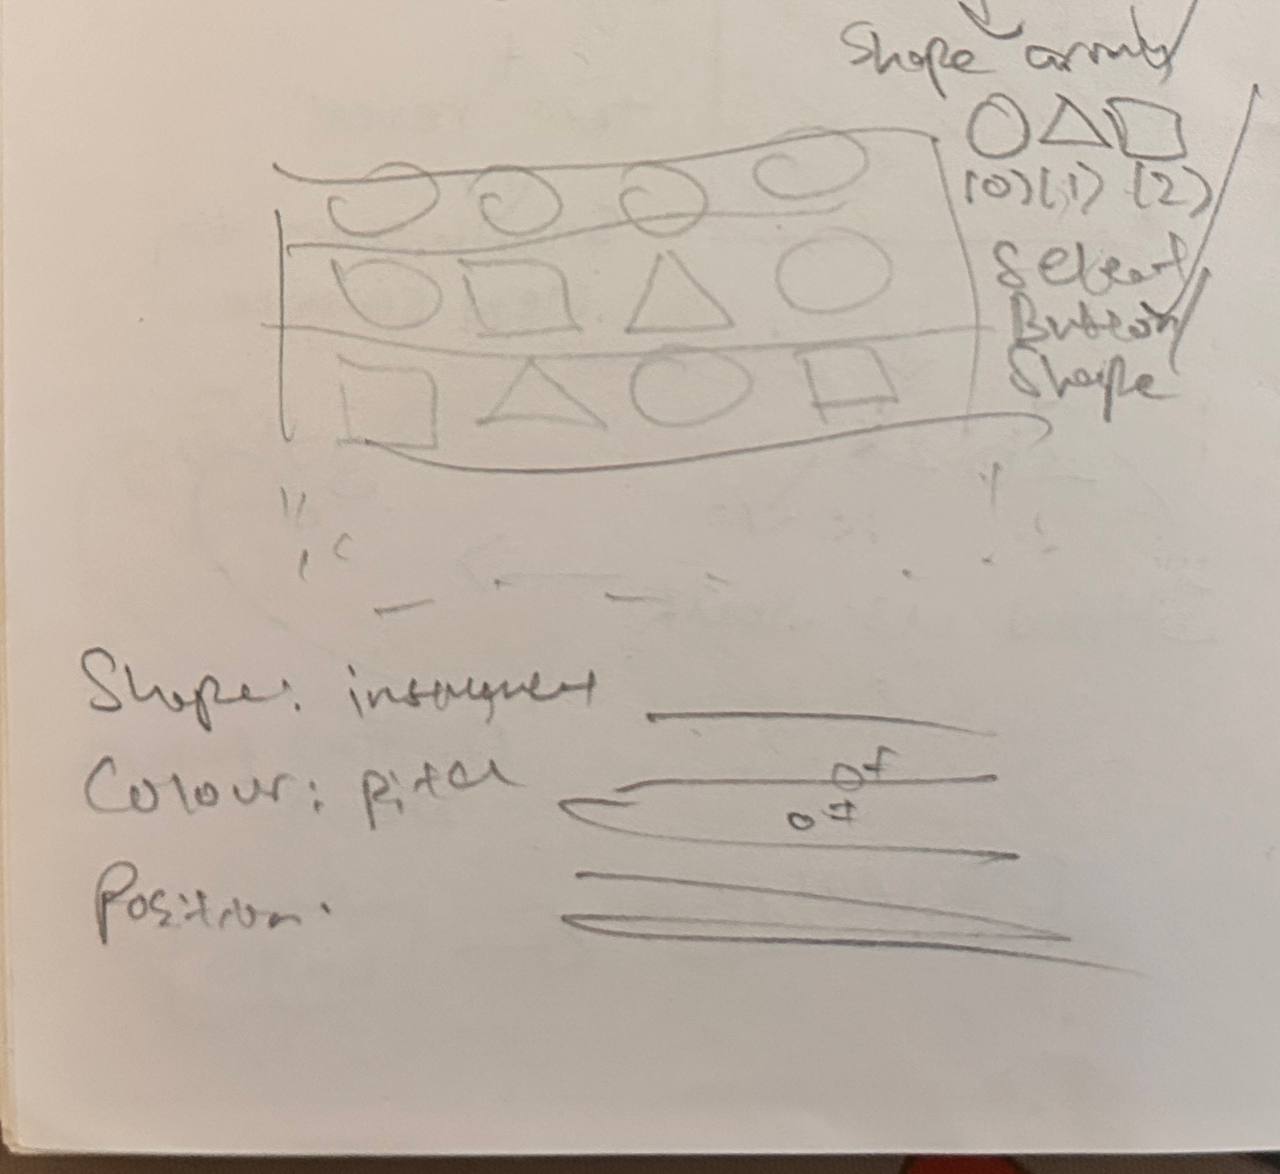 Shape array
(0) (1) (2)
Select
Button
Shape
Shape: instrument
Colour: pitch
Position: